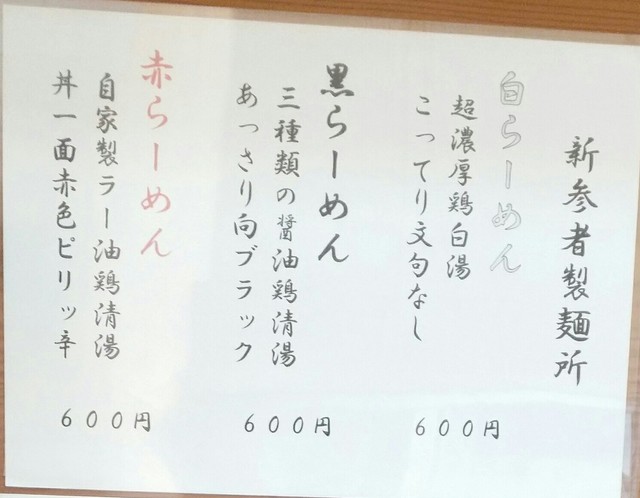 新参者製麺所
白らーめん
超濃厚鶏白湯
こってり文句なし
600円
黒らーめん
三種類の醤油鶏清湯
あっさり向ブラック
600円
赤らーめん
自家製ラー油鶏清湯
丼一面赤色ピリッ辛
600円